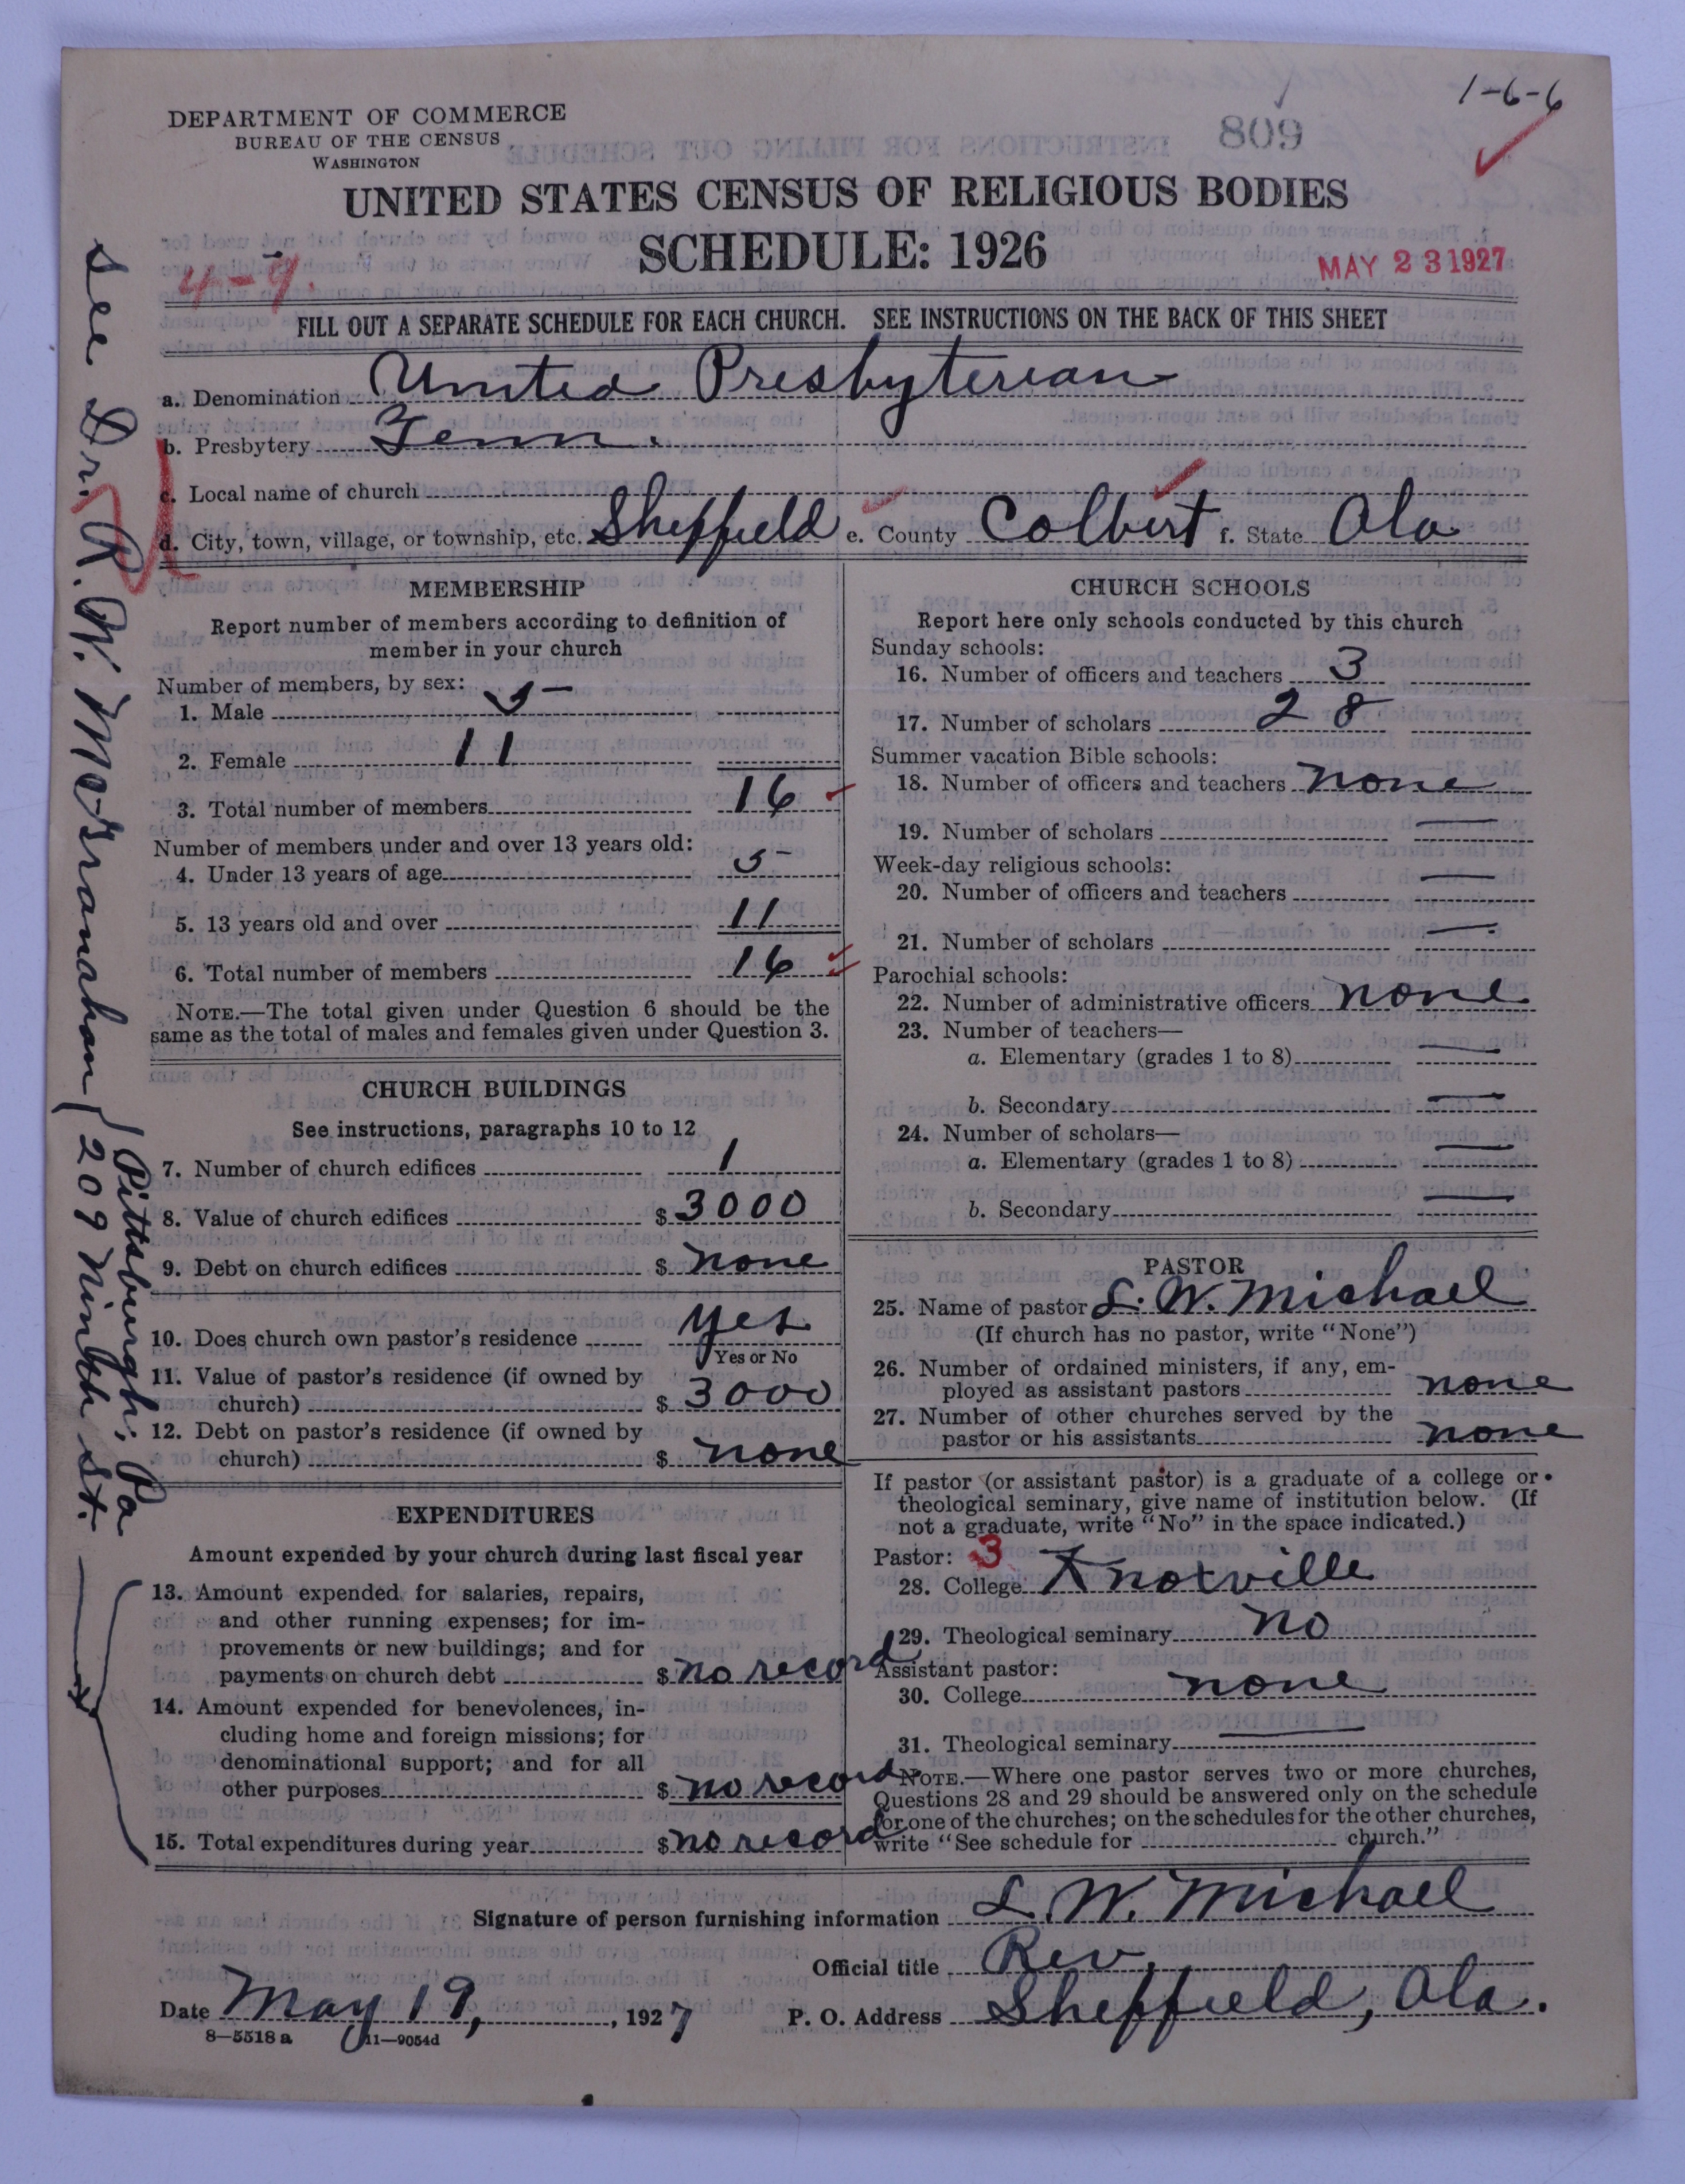 1-6-6
DEPARTMENT OF COMMERCE
BUREAU OF THE CENSUS
WASHINGTON
809
UNITED STATES CENSUS OF RELIGIOUS BODIES
SCHEDULE: 1926
4-9.
MAY 23 1927
FILL OUT A SEPARATE SCHEDULE FOR EACH CHURCH. SEE INSTRUCTIONS ON THE BACK OF THIS SHEET
a. Denomination United Presbyterian
b. Presbytery Tenn.
c. Local name of church
d. City, town, village, or township, etc. Sheffield e. County Colbert f. State Ala
MEMBERSHIP
Report number of members according to definition of
member in your church
Number of members, by sex:
1. Male 5
2. Female 11
3. Total number of members 16
Number of members under and over 13 years old:
4. Under 13 years of age 5
5. 13 years old and over 11
6. Total number of members 16
NOTE.—The total given under Question 6 should be the
same as the total of males and females given under Question 3.
CHURCH BUILDINGS
See instructions, paragraphs 10 to 12
7. Number of church edifices 1
8. Value of church edifices $ 3000
9. Debt on church edifices $ none
10. Does church own pastor's residence yes
Yes or No
11. Value of pastor's residence (if owned by
church) $ 3000
12. Debt on pastor's residence (if owned by
church) $ none
EXPENDITURES
Amount expended by your church during last fiscal year
13. Amount expended for salaries, repairs,
and other running expenses; for im-
provements or new buildings; and for
payments on church debt $ no record
14. Amount expended for benevolences, in-
cluding home and foreign missions; for
denominational support; and for all
other purposes $ no record
15. Total expenditures during year $ no record
CHURCH SCHOOLS
Report here only schools conducted by this church
Sunday schools:
16. Number of officers and teachers 3
17. Number of scholars 28
Summer vacation Bible schools:
18. Number of officers and teachers none
19. Number of scholars —
Week-day religious schools:
20. Number of officers and teachers —
21. Number of scholars —
Parochial schools:
22. Number of administrative officers none
23. Number of teachers—
a. Elementary (grades 1 to 8) —
b. Secondary —
24. Number of scholars—
a. Elementary (grades 1 to 8) —
b. Secondary —
PASTOR
25. Name of pastor L. W. Michael
(If church has no pastor, write "None")
26. Number of ordained ministers, if any, em-
ployed as assistant pastors none
27. Number of other churches served by the
pastor or his assistants none
If pastor (or assistant pastor) is a graduate of a college or
theological seminary, give name of institution below. (If
not a graduate, write "No" in the space indicated.)
Pastor: 3
28. College Knoxville
29. Theological seminary no
Assistant pastor:
30. College none
31. Theological seminary —
NOTE.—Where one pastor serves two or more churches,
Questions 28 and 29 should be answered only on the schedule
for one of the churches; on the schedules for the other churches,
write "See schedule for church."
Signature of person furnishing information L. W. Michael
Official title Rev.
Date May 19, 1927 P. O. Address Sheffield, Ala.
8—5518 a 11—9054d
see Dr. R. W. McGranahan
209 Ninth St.
Pittsburgh; Pa